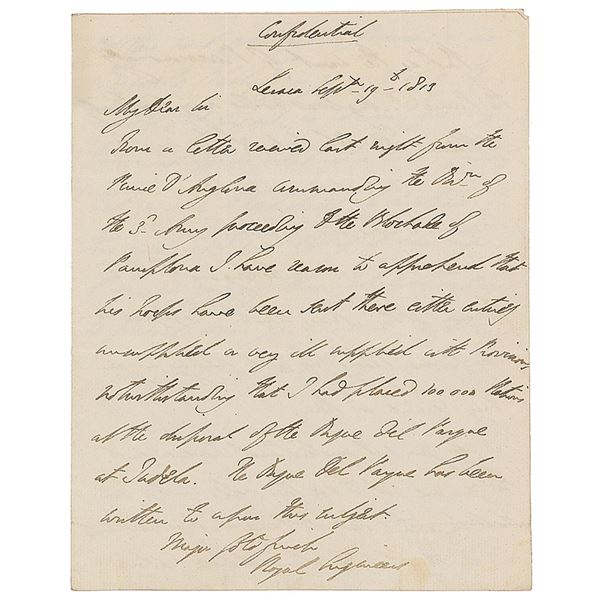 Confidential
Lesaca Septr. 19th 1813
My Dear Sir
From a letter received last night from the
Prince D'Anglona commanding the Divn. of
the 3d Army proceeding to the Blockade of
Pamplona I have reason to apprehend that
his troops have been sent there either entirely
unsupplied or very ill supplied with Provisions
notwithstanding that I had placed 100 000 Rations
at the disposal of the Duque del Parque
at Tudela. The Duque Del Parque has been
written to upon this subject.
Major Goldfinch
Royal Engineers